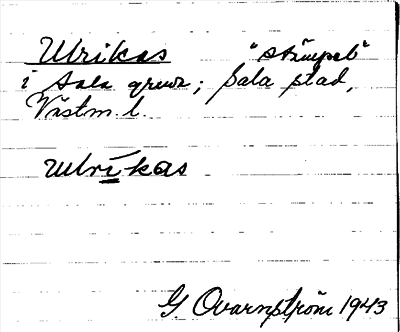 Ulrikas "stämpel"
i Sala gruva; Sala stad,
Västm. l.
Ulrikas
G Qvarnström 1943